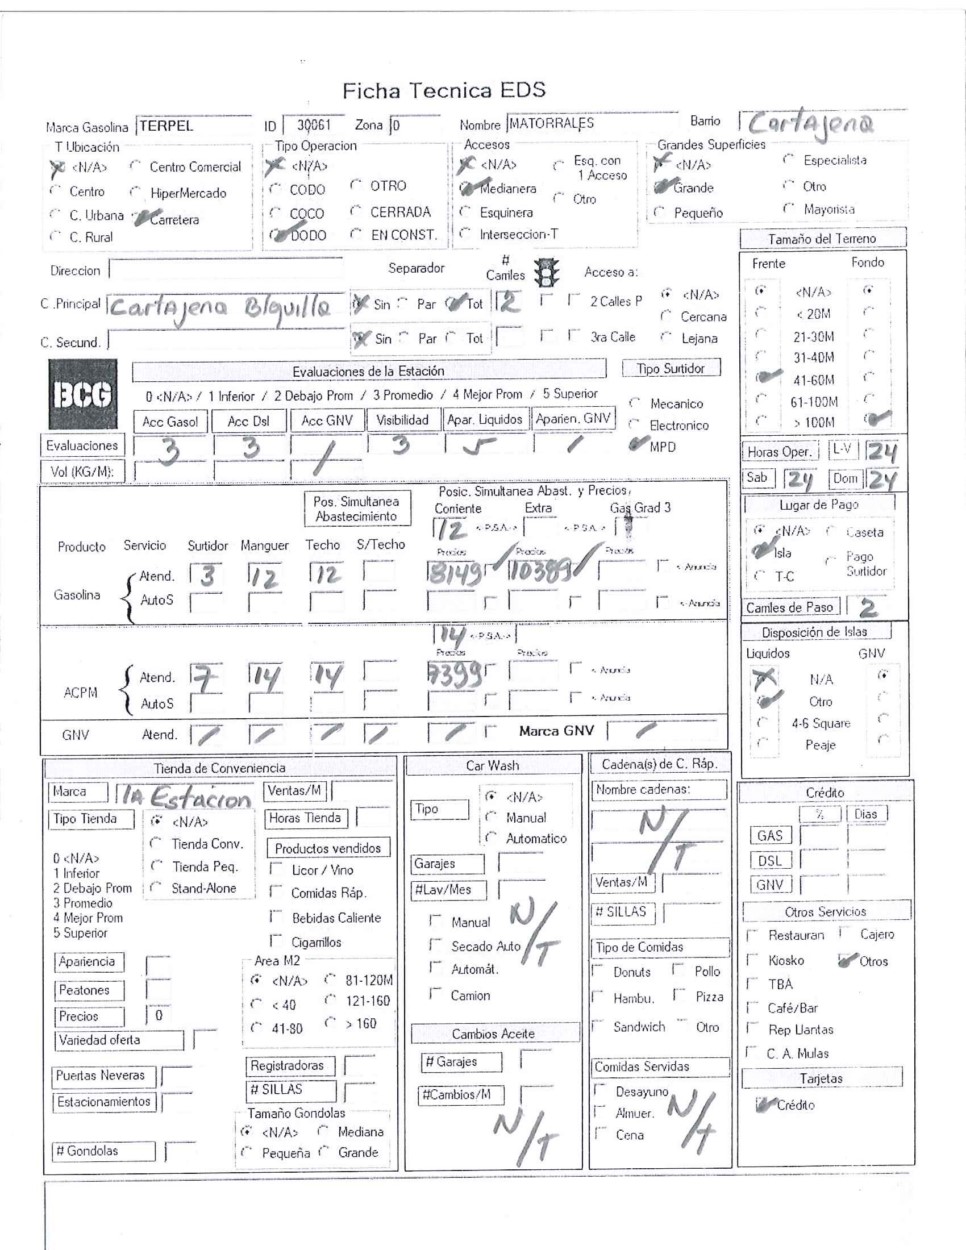 Ficha Tecnica EDS
Marca Gasolina TERPEL ID 30061 Zona 0 Nombre MATORRALES Barrio Cartajena
T Ubicación Tipo Operacion Accesos Grandes Superficies
<N/A> Centro Comercial <N/A> <N/A> Esq. con 1 Acceso <N/A> Especialista
Centro HiperMercado CODO OTRO Medianera Otro Grande Otro
C. Urbana Carretera COCO CERRADA Esquinera Pequeño Mayorista
C. Rural DODO EN CONST. Interseccion-T
Tamaño del Terreno
Direccion Separador # Carriles Acceso a: Frente Fondo
C .Principal Cartajena B/quilla Sin Par Tot 2 2 Calles P <N/A> <N/A>
Cercana < 20M
C. Secund. Sin Par Tot 3ra Calle Lejana 21-30M
31-40M
BCG Evaluaciones de la Estación Tipo Surtidor 41-60M
0 <N/A> / 1 Inferior / 2 Debajo Prom / 3 Promedio / 4 Mejor Prom / 5 Superior Mecanico 61-100M
Acc Gasol Acc Dsl Acc GNV Visibilidad Apar. Liquidos Aparien. GNV Electronico > 100M
Evaluaciones 3 3 / 3 5 / MPD
Vol (KG/M):
Horas Oper. L-V 24
Sab 24 Dom 24
Pos. Simultanea Abastecimiento Posic. Simultanea Abast. y Precios,
Corriente Extra Gas Grad 3
12 <-P.S.A.-> <-P.S.A.->
Producto Servicio Surtidor Manguer Techo S/Techo Precios Precios Precios
Gasolina Atend. 3 12 12 8149 10389 <- Anuncia
AutoS <- Anuncia
Lugar de Pago
<N/A> Caseta
Isla Pago Surtidor
T-C
Carriles de Paso 2
14 <-P.S.A.->
Precios Precios
ACPM Atend. 7 14 14 7399 <- Anuncia
AutoS <- Anuncia
GNV Atend. / / / / / Marca GNV /
Disposición de Islas
Liquidos GNV
N/A
Otro
4-6 Square
Peaje
Tienda de Conveniencia
Marca 1A Estacion Ventas/M
Tipo Tienda <N/A> Horas Tienda
Tienda Conv. Productos vendidos
0 <N/A> Tienda Peq. Licor / Vino
1 Inferior
2 Debajo Prom Stand-Alone Comidas Ráp.
3 Promedio
4 Mejor Prom Bebidas Caliente
5 Superior Cigarrillos
Apariencia Area M2
Peatones <N/A> 81-120M
Precios 0 < 40 121-160
Variedad oferta 41-80 > 160
Puertas Neveras Registradoras
Estacionamientos # SILLAS
Tamaño Gondolas
<N/A> Mediana
# Gondolas Pequeña Grande
Car Wash
Tipo <N/A>
Manual
Automatico
Garajes
#Lav/Mes
Manual N/T
Secado Auto
Automát.
Camion
Cambios Aceite
# Garajes
#Cambios/M
N/T
Cadena(s) de C. Ráp.
Nombre cadenas:
N/T
Ventas/M
# SILLAS
Tipo de Comidas
Donuts Pollo
Hambu. Pizza
Sandwich Otro
Comidas Servidas
Desayuno
Almuer. N/T
Cena
Crédito
% Dias
GAS
DSL
GNV
Otros Servicios
Restauran Cajero
Kiosko Otros
TBA
Café/Bar
Rep Llantas
C. A. Mulas
Tarjetas
Crédito